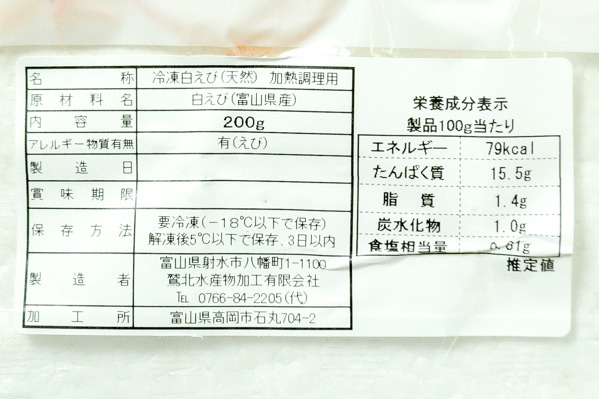 名称 冷凍白えび(天然) 加熱調理用
原材料名 白えび(富山県産)
内容量 200g
アレルギー物質有無 有(えび)
製造日
賞味期限
保存方法 要冷凍(-18℃以下で保存)
解凍後5℃以下で保存、3日以内
製造者 富山県射水市八幡町1-1100
鷲北水産物加工有限会社
TEL 0766-84-2205(代)
加工所 富山県高岡市石丸704-2
栄養成分表示
製品100g当たり
エネルギー 79kcal
たんぱく質 15.5g
脂質 1.4g
炭水化物 1.0g
食塩相当量 0.61g
推定値